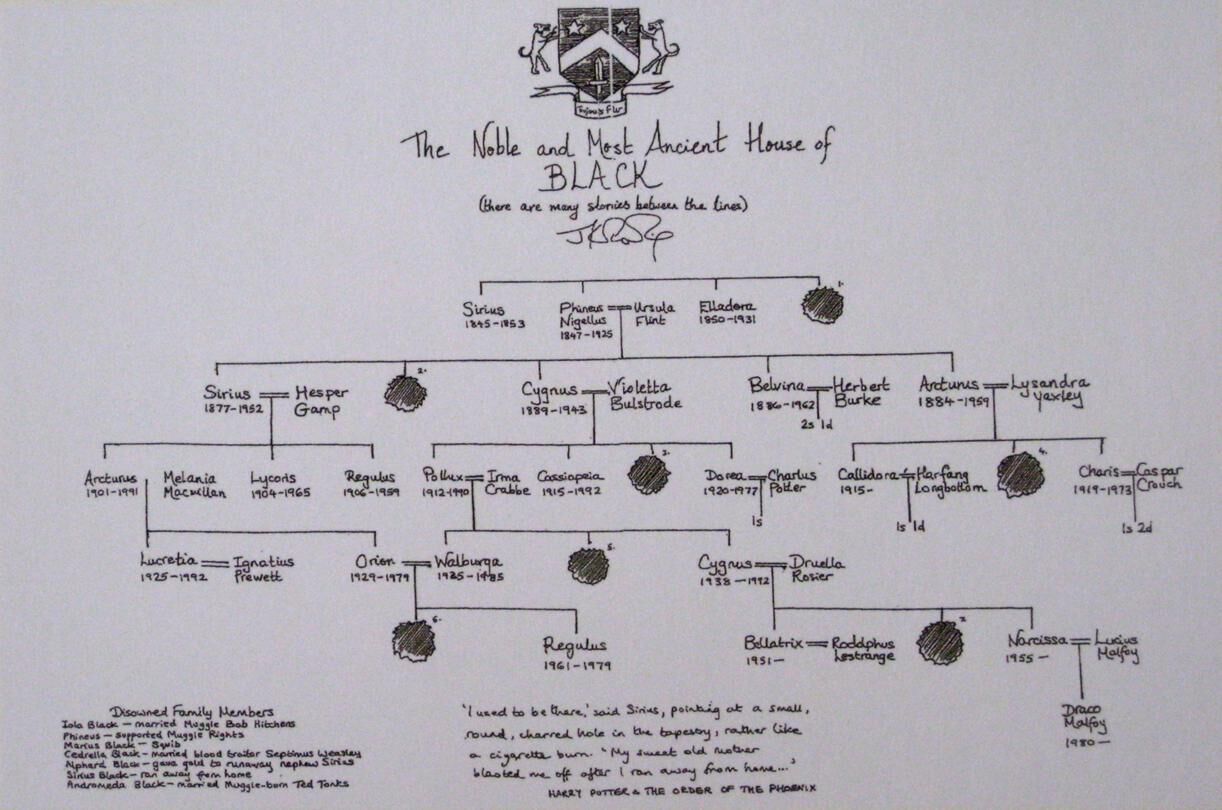 Toujours Pur
The Noble and Most Ancient House of
BLACK
(there are many stories between the lines)
1.
Sirius
1845-1853
Phineas
Nigellus
1847-1925
Ursula
Flint
Elladora
1850-1931
2.
Sirius
1877-1952
Hesper
Gamp
Cygnus
1889-1943
Violetta
Bulstrode
Belvina
1886-1962
Herbert
Burke
2s 1d
Arcturus
1884-1959
Lysandra
Yaxley
3.
4.
Arcturus
1901-1991
Melania
Macmillan
Lycoris
1904-1965
Regulus
1906-1959
Pollux
1912-1990
Irma
Crabbe
Cassiopeia
1915-1992
Dorea
1920-1977
Charlus
Potter
1s
Callidora
1915-
Harfang
Longbottom
1s 1d
Charis
1919-1973
Caspar
Crouch
1s 2d
5.
Lucretia
1925-1992
Ignatius
Prewett
Orion
1929-1979
Walburga
1925-1985
Cygnus
1938-1992
Druella
Rosier
6.
7.
Regulus
1961-1979
Bellatrix
1951-
Roddphus
Lestrange
Narcissa
1955-
Lucius
Malfoy
Draco
Malfoy
1980-
Disowned Family Members
Iola Black - married Muggle Bob Hitchens
Phineus - supported Muggle Rights
Marius Black - Squib
Cedrella Black - married blood traitor Septimus Weasley
Alphard Black - gave gold to runaway nephew Sirius
Sirius Black - ran away from home
Andromeda Black - married Muggle-born Ted Tonks
'I used to be there,' said Sirius, pointing at a small,
round, charred hole in the tapestry, rather like
a cigarette burn. 'My sweet old mother
blasted me off after I ran away from home...'
HARRY POTTER & THE ORDER OF THE PHOENIX